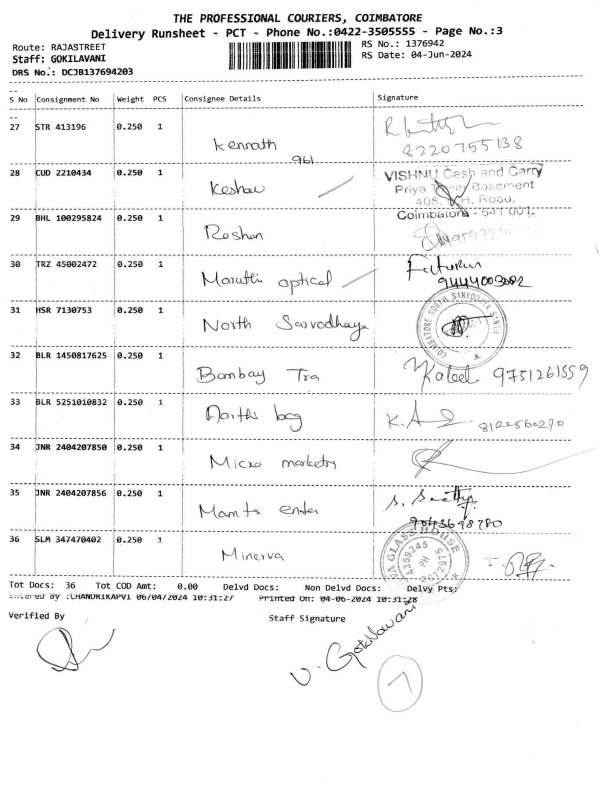 THE PROFESSIONAL COURIERS, COIMBATORE
Delivery Runsheet - PCT - Phone No.:0422-3505555 - Page No.:3
Route: RAJASTREET
RS No.: 1376942
Staff: GOKILAVANI
RS Date: 04-Jun-2024
DRS No.: DCJB137694203
S No Consignment No Weight PCS Consignee Details Signature
27 STR 413196 0.250 1 Kennath
961
8220755138
28 CUD 2210434 0.250 1 Keshav
VISHNU Cash and Carry
Priya Tower Basement
405, H. Road,
Coimbatore - 641 001.
29 BHL 100295824 0.250 1 Roshan
30 TRZ 45002472 0.250 1 Maruthi optical
9444003082
31 HSR 7130753 0.250 1 North Sarvodhaya
COIMBATORE NORTH SARVODAYA SANGH
32 BLR 1450817625 0.250 1 Bombay Tra Kaleel 9751261559
33 BLR 5251010832 0.250 1 8122560270
34 JNR 2404207850 0.250 1 Micro marketry
35 JNR 2404207856 0.250 1
9043698780
36 SLM 347470402 0.250 1 Minerva
GLASS HOUSE
PH
Tot Docs: 36 Tot COD Amt: 0.00 Delvd Docs: Non Delvd Docs: Delvy Pts:
Entered By :CHANDRIKAPVI 06/04/2024 10:31:27 Printed On: 04-06-2024 10:31:28
Verified By Staff Signature
V. Gokilavani